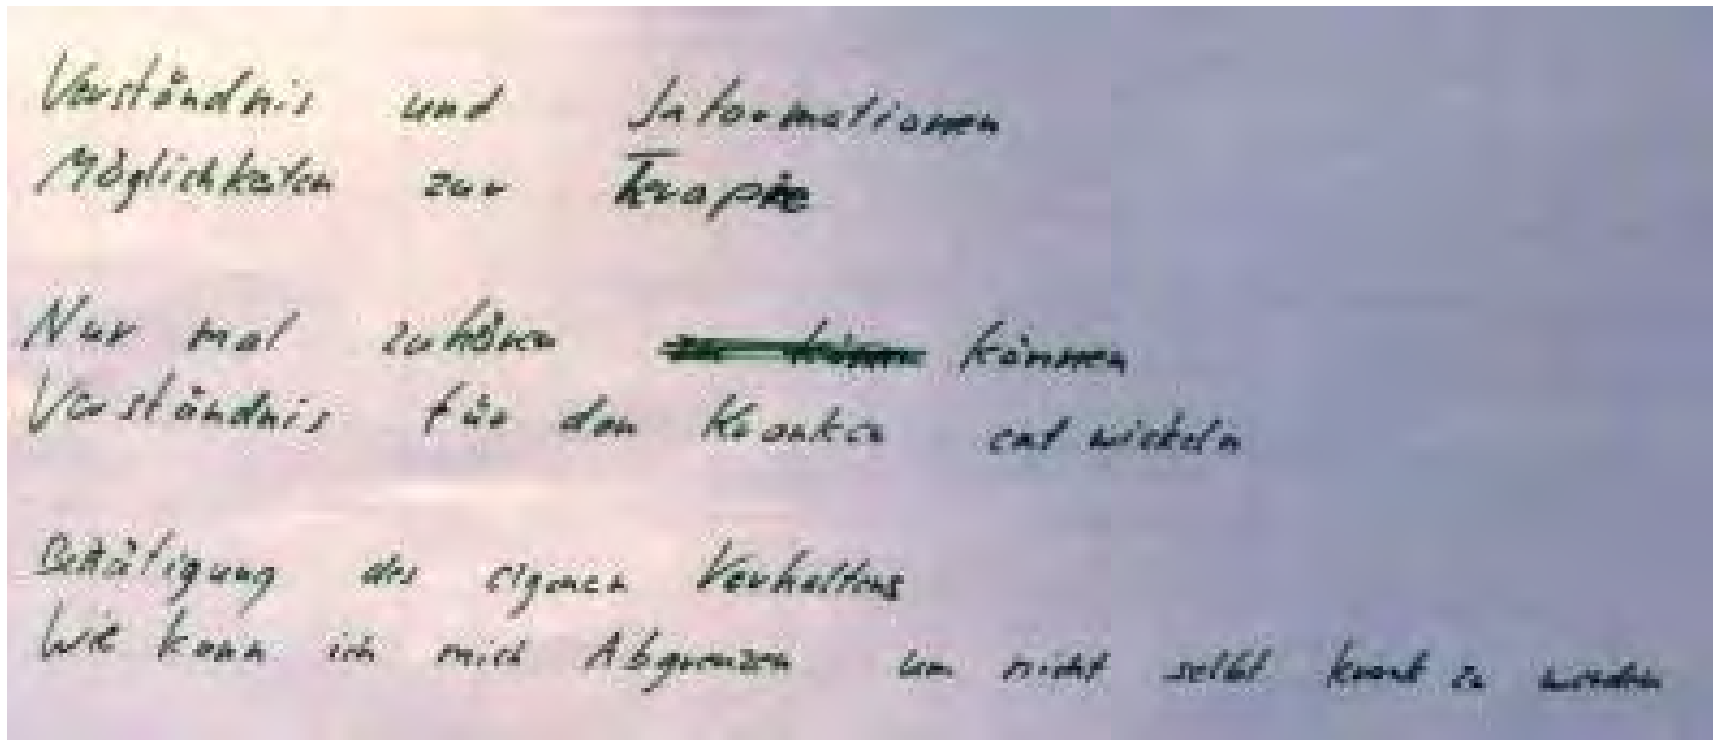 Verständnis und Informationen
Möglichkeiten zur Terapie
Nur mal zuhören zu können können
Verständnis für den Kranken entwickeln
Bestätigung des eigenen Verhaltens
Wie kann ich mich Abgrenzen um nicht selbst krank zu werden